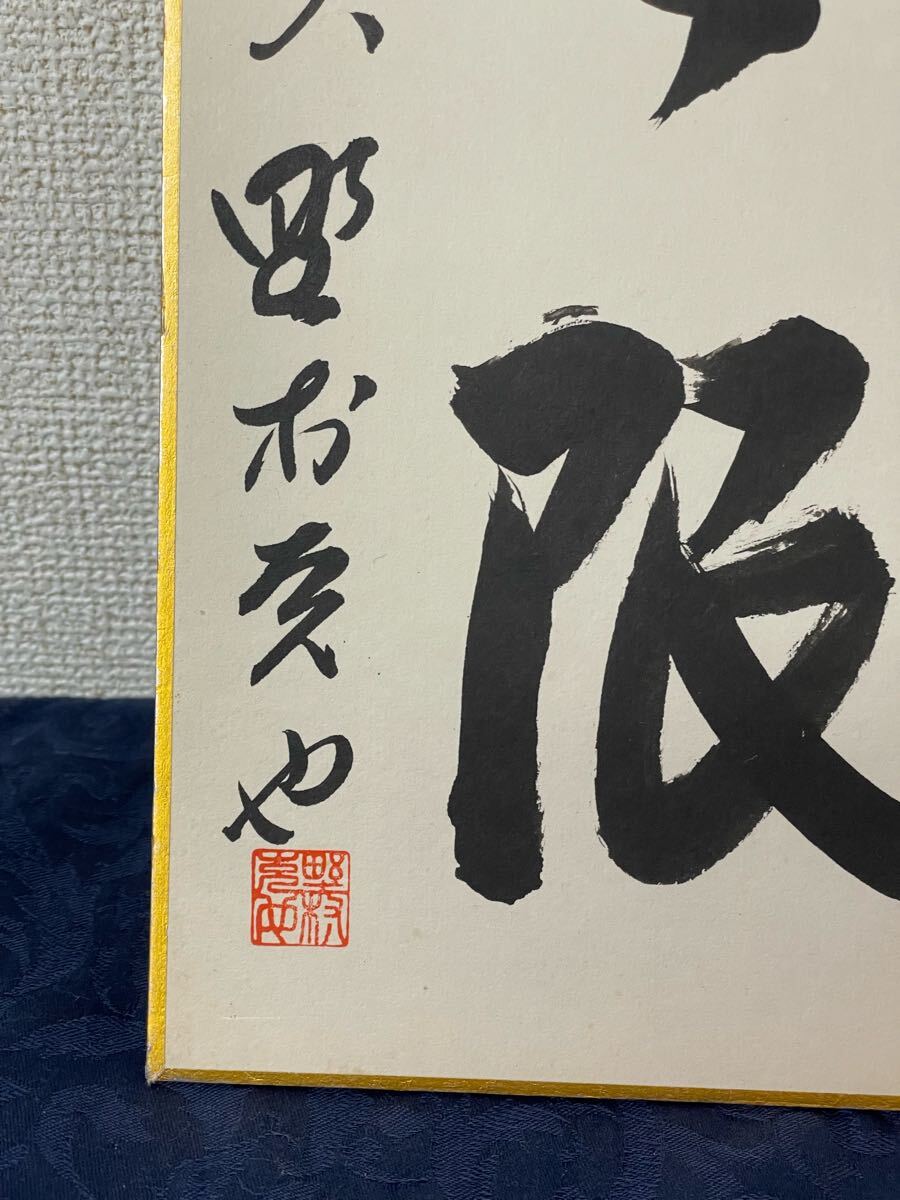 限
野村克也
野村克也